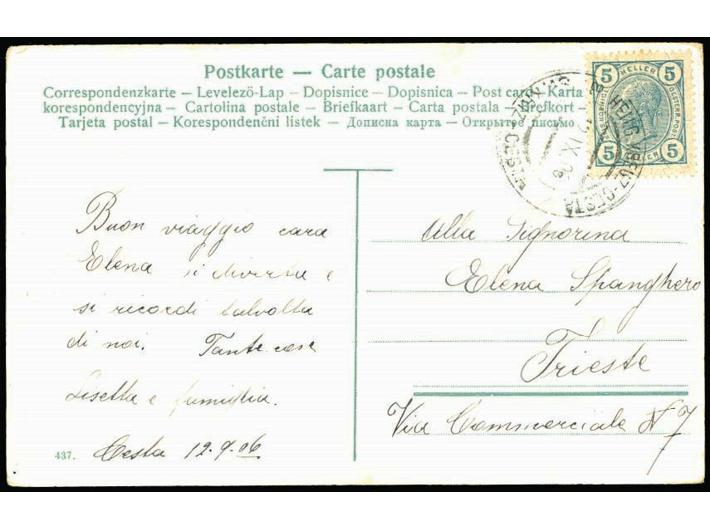 Postkarte — Carte postale
Correspondenzkarte – Levelezö-Lap – Dopisnice – Dopisnica – Post card – Karta
korespondencyjna – Cartolina postale – Briefkaart – Carta postala – Brefkort –
Tarjeta postal – Korespondenční listek – Дописна карта – Открытое письмо
5 HELLER 5
5 5
HEILIG. KREUZ-CESTA
IX 06
Buon viaggio cara
Elena si diverta e
si ricordi talvolta
di noi. Tante cose
Lisetta e famiglia.
Cesta 12.9.06
437.
Alla Signorina
Elena Spanghero
Trieste
Via Commerciale N 7